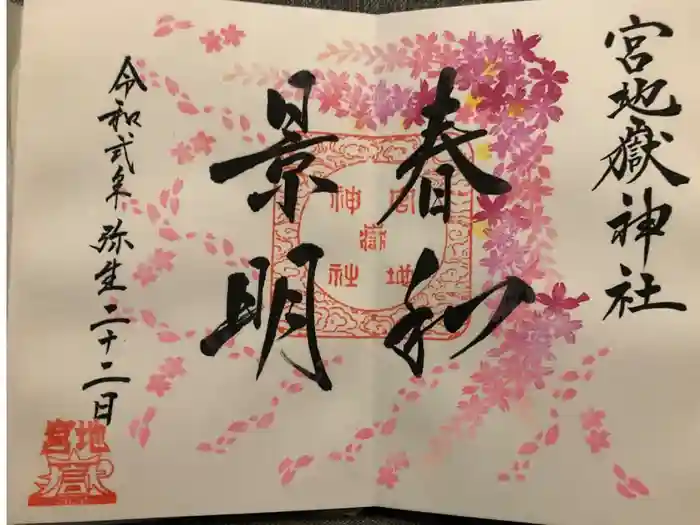 宮地嶽神社
春和
景明
宮地
嶽
神社
令和弐年 弥生二十二日
宮地